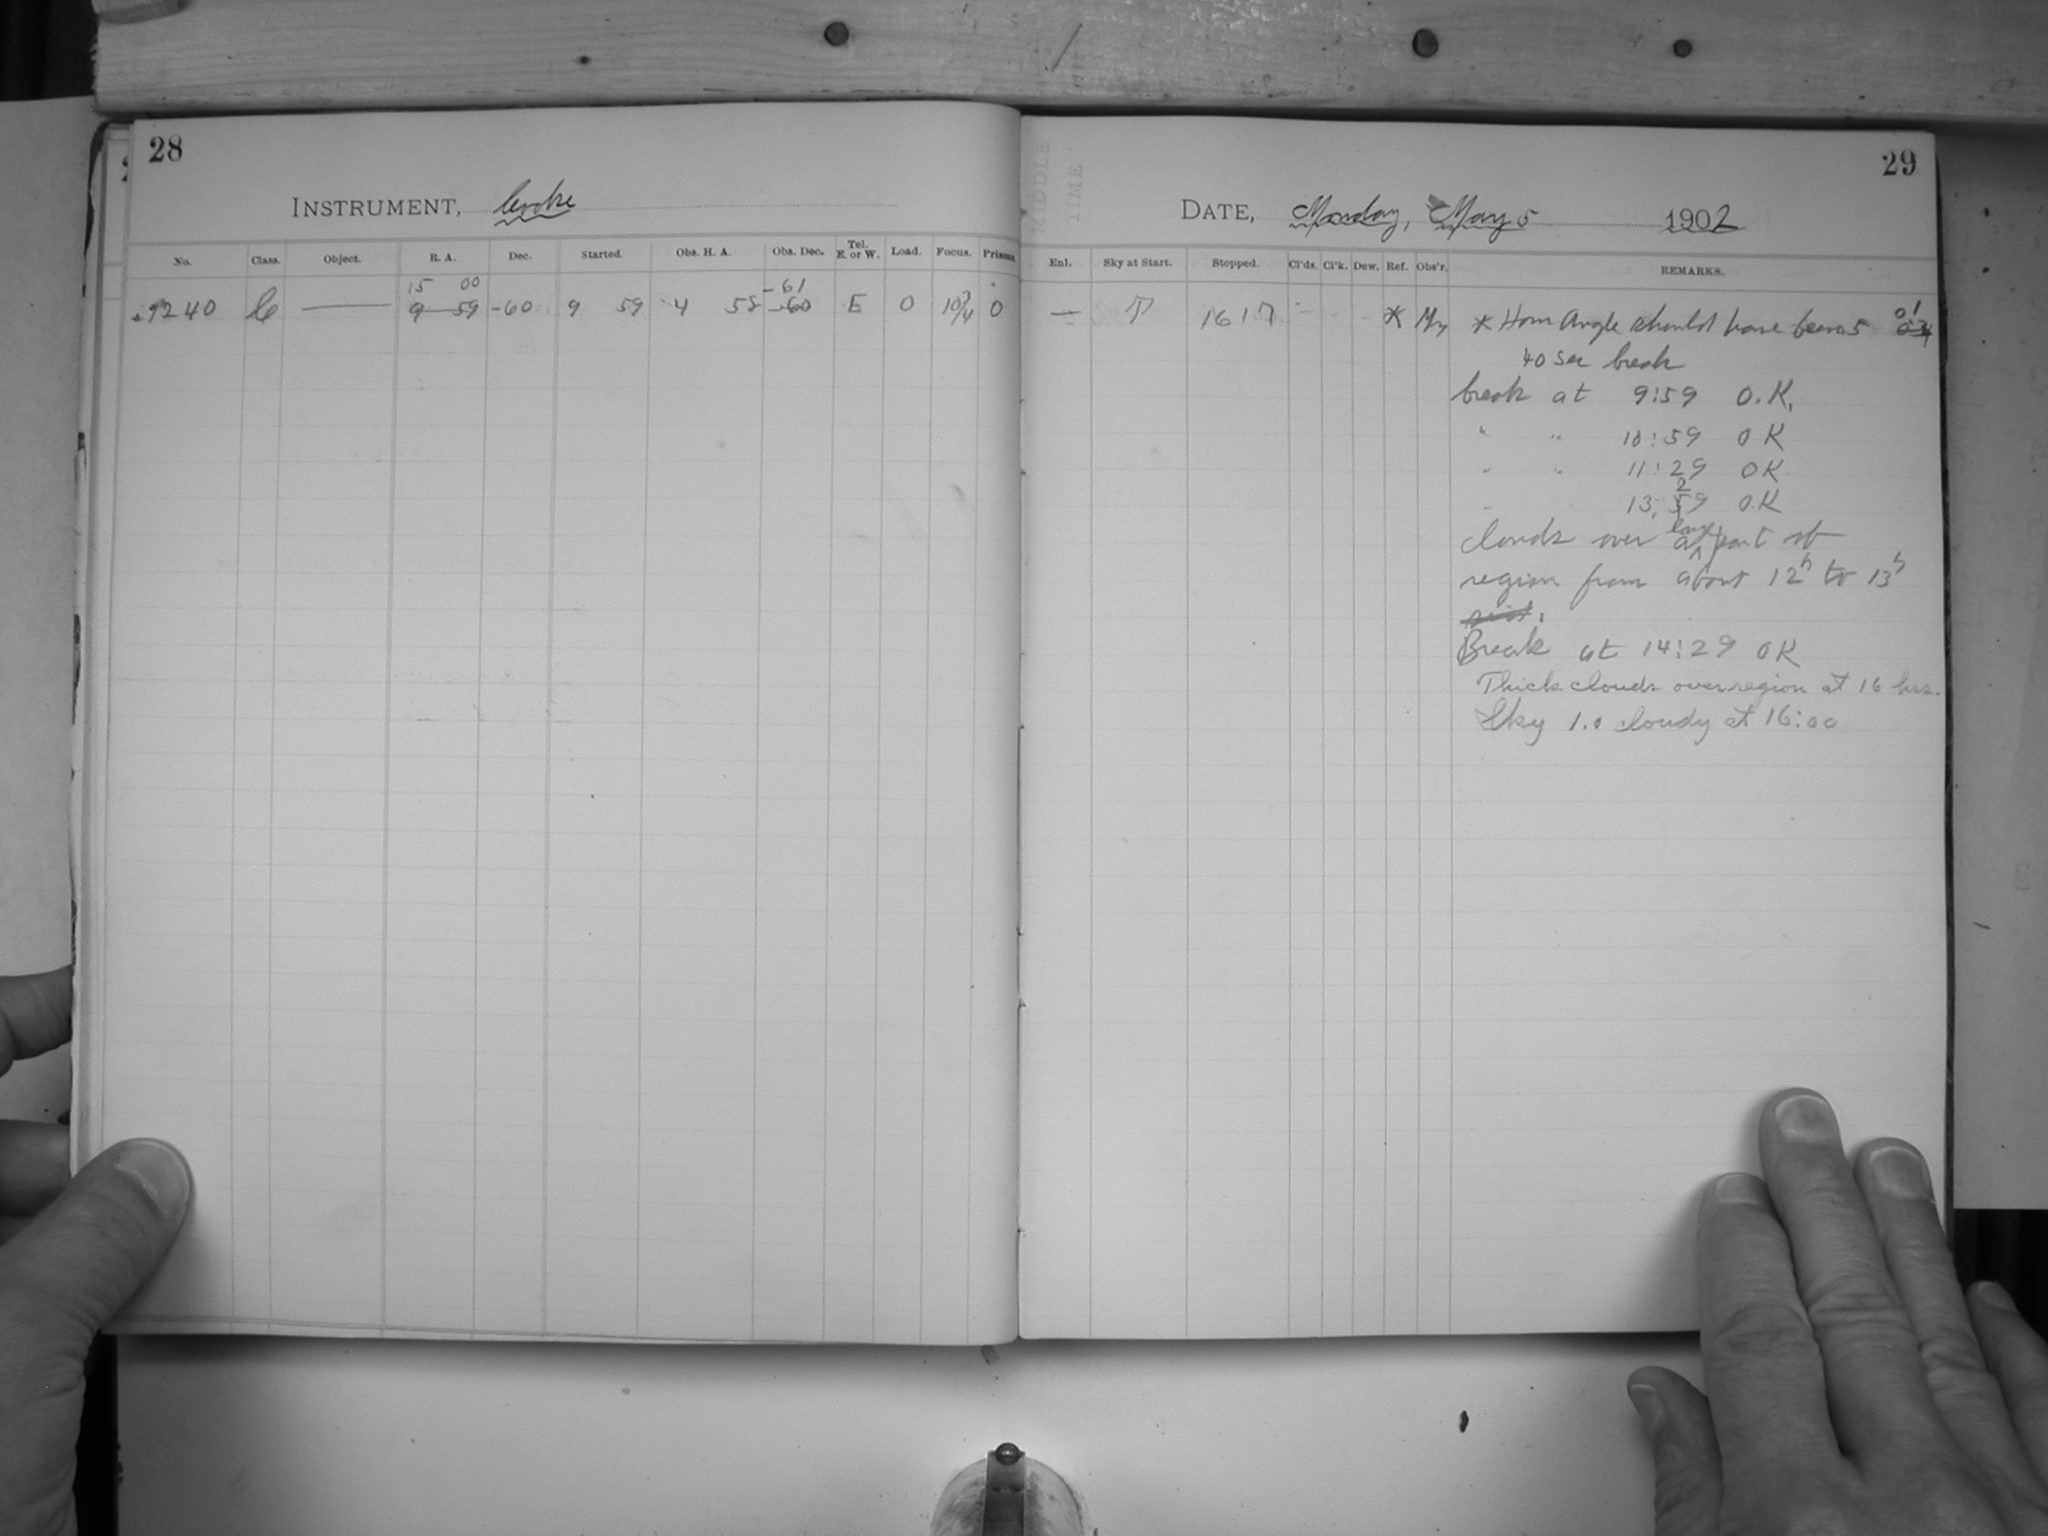 28
INSTRUMENT, Cooke
No. Class. Object. R. A. Dec. Started. Obs. H. A. Obs. Dec. Tel. E. or W. Load. Focus. Prisms
15 00 -61
9240 C — 9 59 -60 9 59 4 58 -60 E 0 10 3/4 0
MIDDLE
TIME
29
DATE, Monday, May 5 1902
Enl. Sky at Start. Stopped. Cl'ds. Cl'k. Dew. Ref. Obs'r. REMARKS.
— 16 17 * My * Hour Angle should have been 5 01
40 sec break
break at 9:59 O.K.
" " 10:59 OK
" " 11:29 OK.
" 13:29 O.K
clouds over a large part of
region from about 12h to 13h
Break at 14:29 OK
Thick clouds over region at 16 hrs.
Sky 1.0 cloudy at 16:00